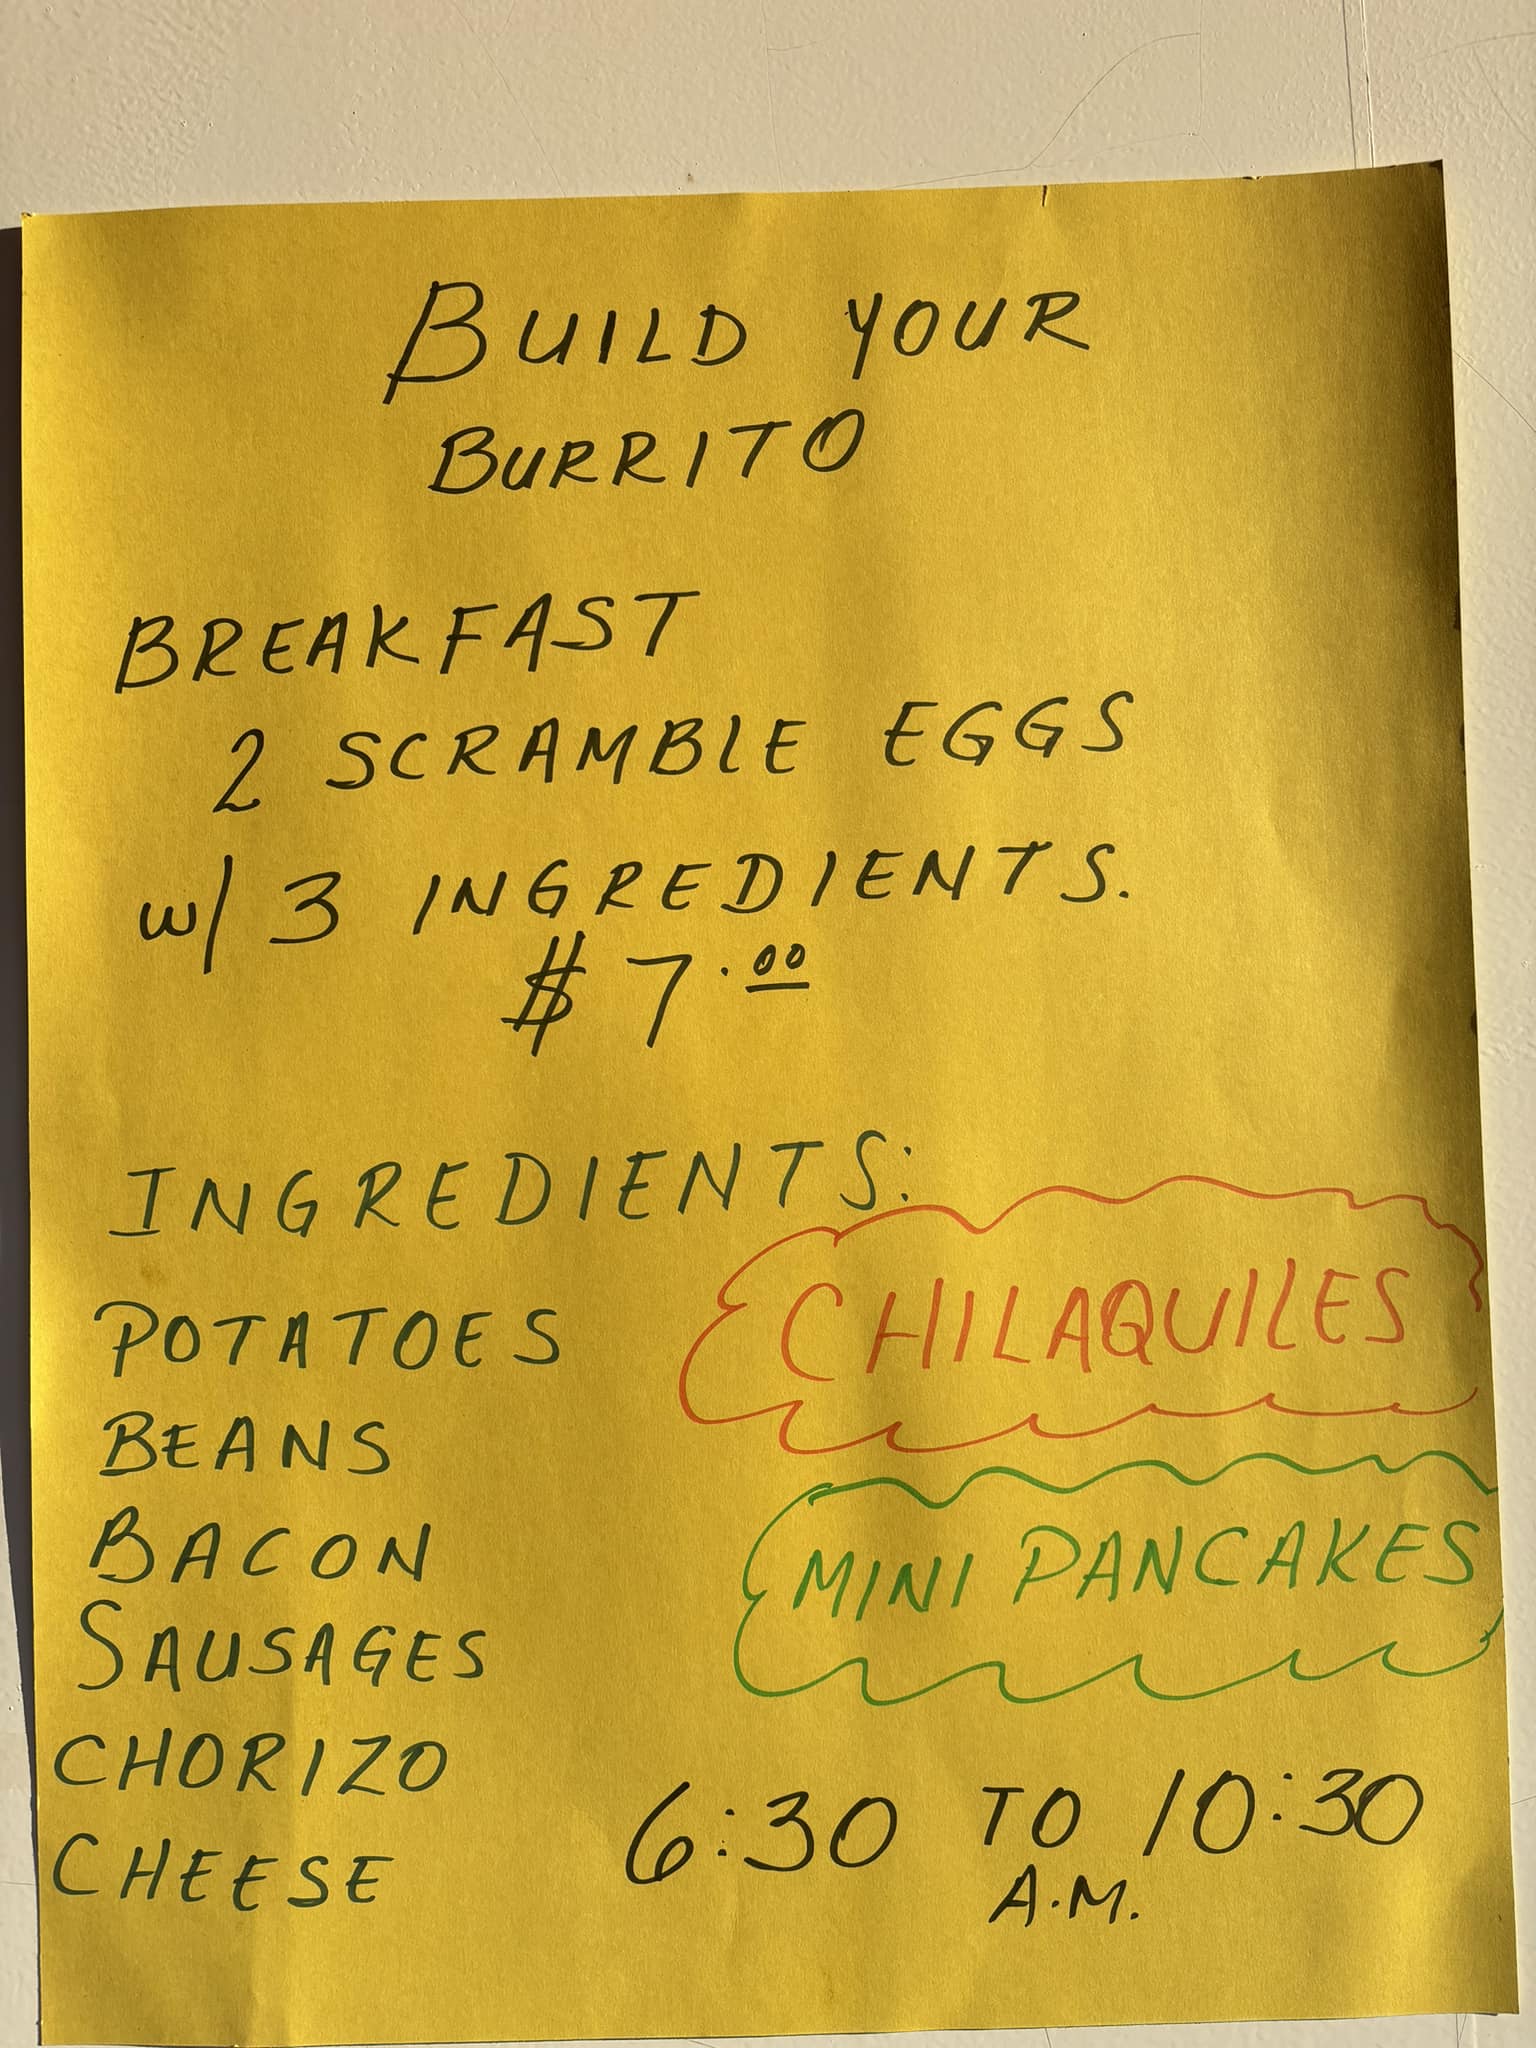 BUILD YOUR
BURRITO
BREAKFAST
2 SCRAMBLE EGGS
w/ 3 INGREDIENTS.
$7.00
INGREDIENTS:
POTATOES
BEANS
BACON
SAUSAGES
CHORIZO
CHEESE
CHILAQUILES
MINI PANCAKES
6:30 TO 10:30
A.M.